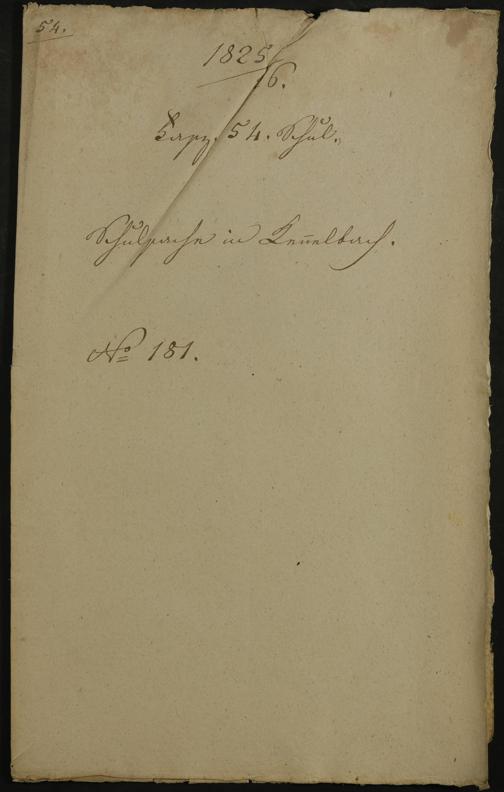 54.
1825
/6.
Harz. 54. Schul.
Schulsache in Kennelbach.
No 181.